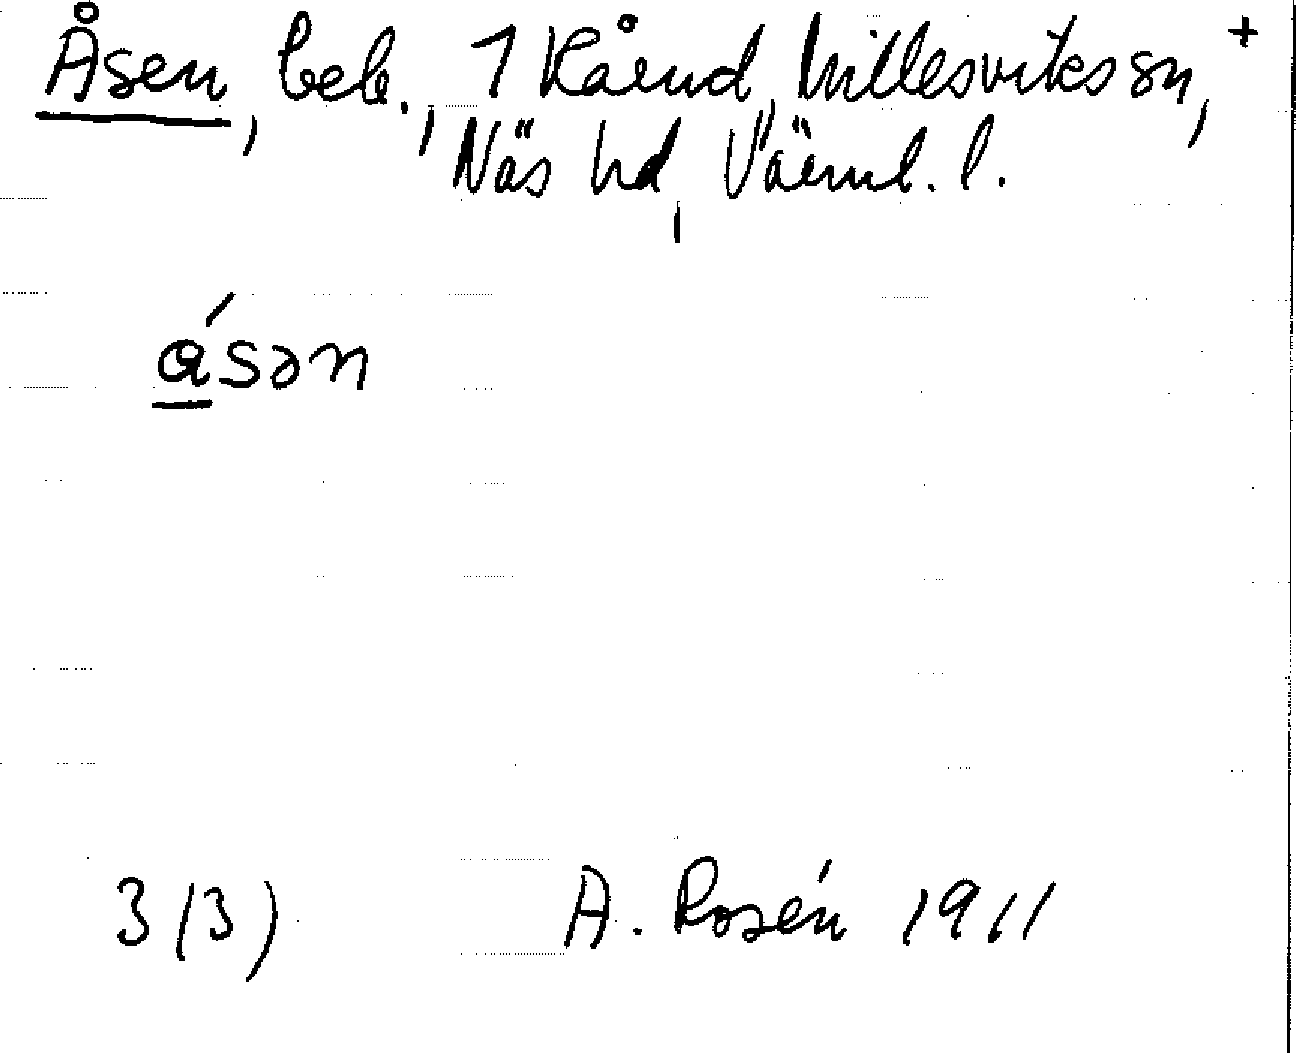 Åsen, beb., 1 Kårud, Millesviks sn, +
Näs hd, Värml. l.
a̲´sən
3 (3) A. Rosén 1911